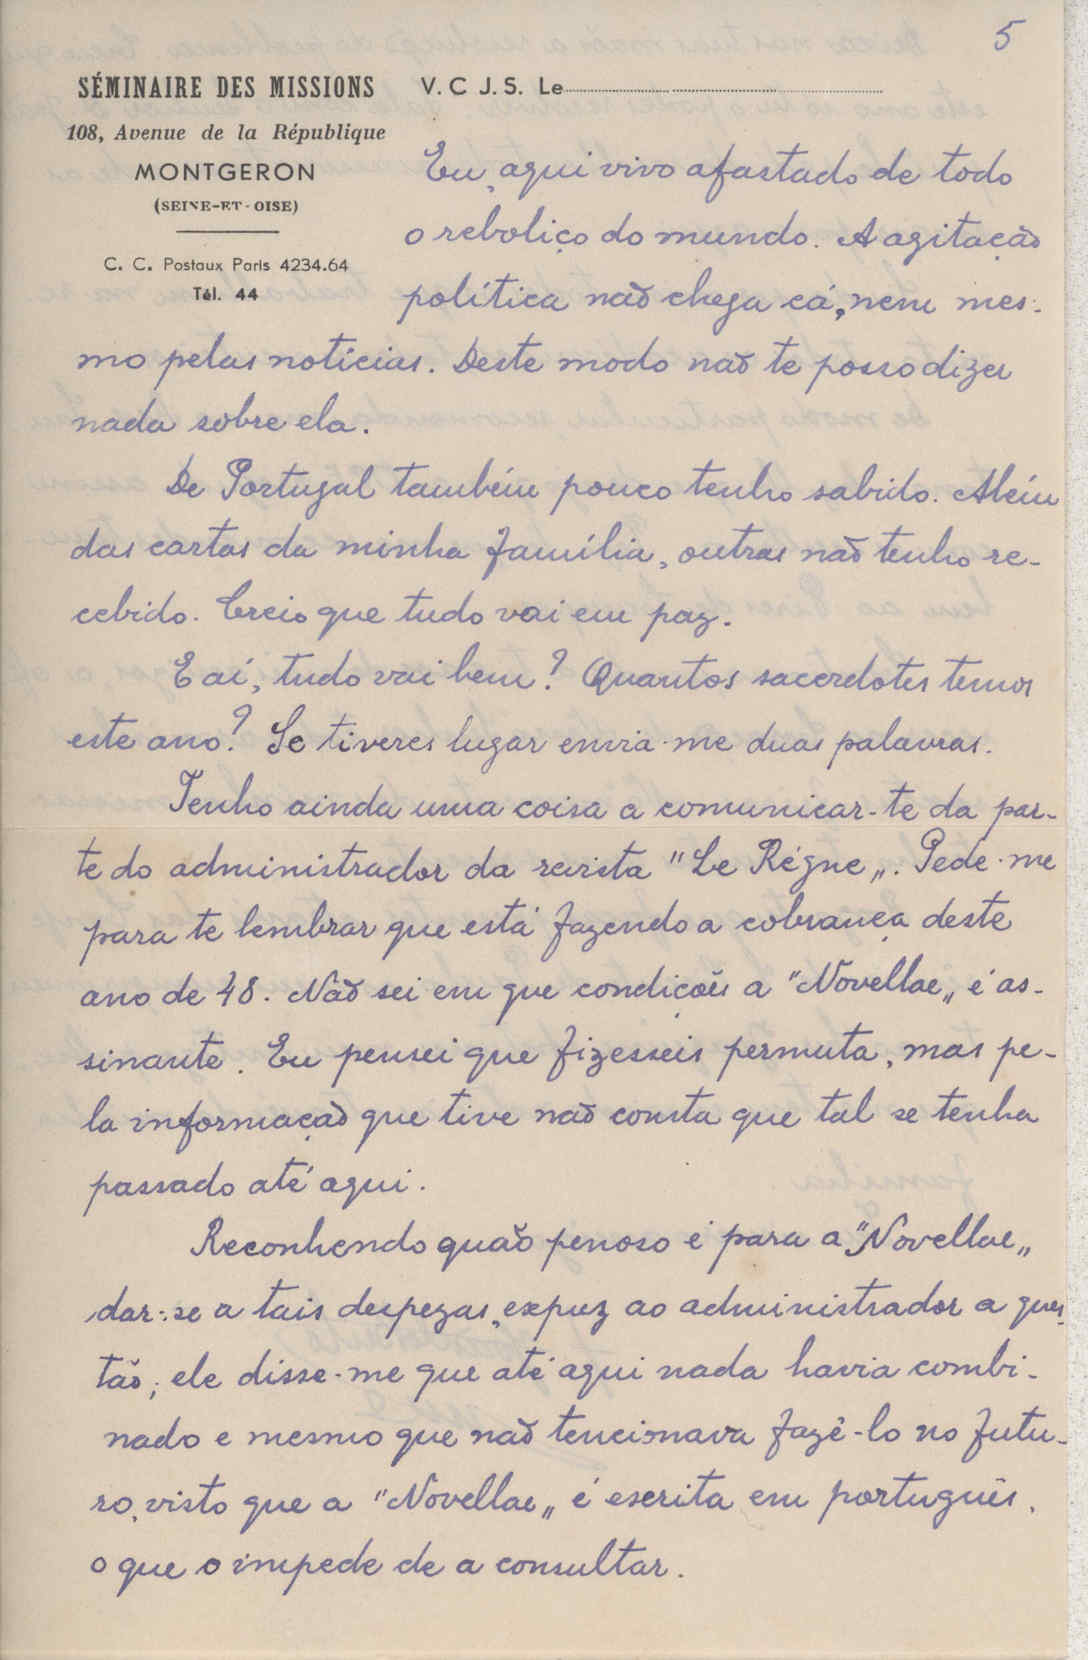 5
SÉMINAIRE DES MISSIONS
V. C J. S. Le
108, Avenue de la République
MONTGERON
(SEINE-ET-OISE)
C. C. Postaux Paris 4234.64
Tél. 44
Eu, aqui vivo afastado de todo
o reboliço do mundo. A agitação
política não chega cá, nem mes-
mo pelas notícias. Deste modo não te posso dizer
nada sobre ela.
De Portugal também pouco tenho sabido. Além
das cartas da minha família, outras não tenho re-
cebido. Creio que tudo vai em paz.
E aí, tudo vai bem? Quantos sacerdotes temos
este ano? Se tiveres lugar envia-me duas palavras.
Tenho ainda uma coisa a comunicar-te da par-
te do administrador da revista "Le Règne„. Pede-me
para te lembrar que está fazendo a cobrança deste
ano de 48. Não sei em que condições a "Novellae„ é as-
sinante. Eu pensei que fizesseis permuta, mas pe-
la informação que tive não consta que tal se tenha
passado até aqui.
Reconhendo quão penoso é para a "Novellae„
dar-se a tais despezas, expuz ao administrador a ques-
tão; ele disse-me que até aqui nada havia combi-
nado e mesmo que não tencionava fazê-lo no futu-
ro, visto que a "Novellae„ é escrita em português,
o que o impede de a consultar.